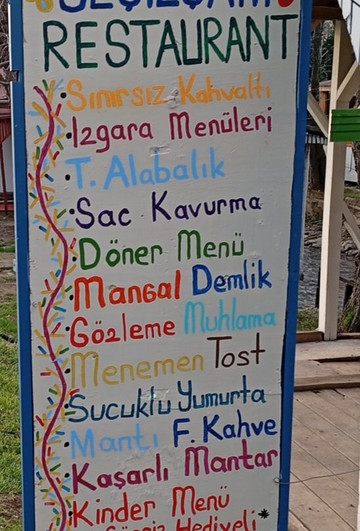 RESTAURANT
• Sınırsız Kahvaltı
• Izgara Menüleri
• T. Alabalık
• Sac Kavurma
• Döner Menü
• Mangal Demlik
• Gözleme Muhlama
• Menemen Tost
• Sucuklu Yumurta
• Mantı F. Kahve
• Kaşarlı Mantar
• Kinder Menü
Hediyeli *